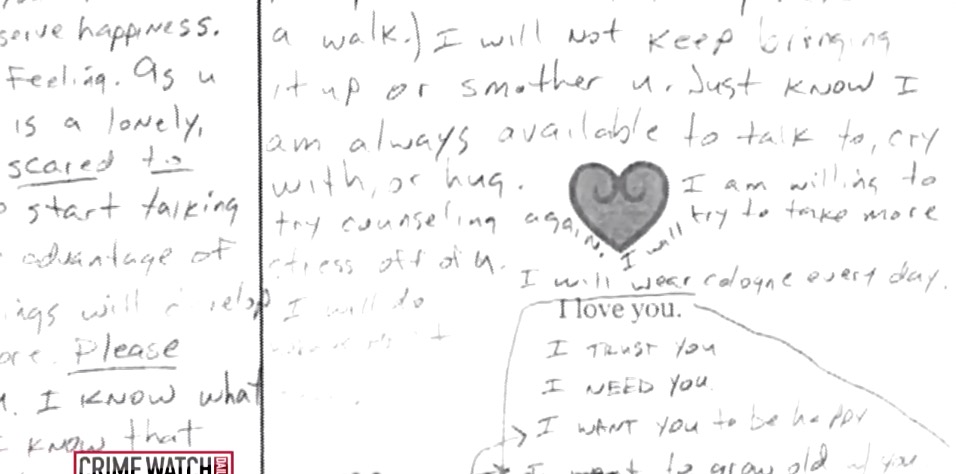 serve happiness.
Feeling. As u
is a lonely,
scared to
start talking
advantage of
ings will
Please
I KNOW what
I KNOW that
CRIME WATCH
a walk.) I will Not Keep bringing
it up or smother u. Just KNOW I
am always available to talk to, cry
with, or hug. I am willing to
try counseling again. I will try to take more
stress off of u.
I will wear cologne every day.
I will do
I love you.
I TRUST YOU
I NEED YOU
I WANT YOU to be happy
I want to grow old w/ you